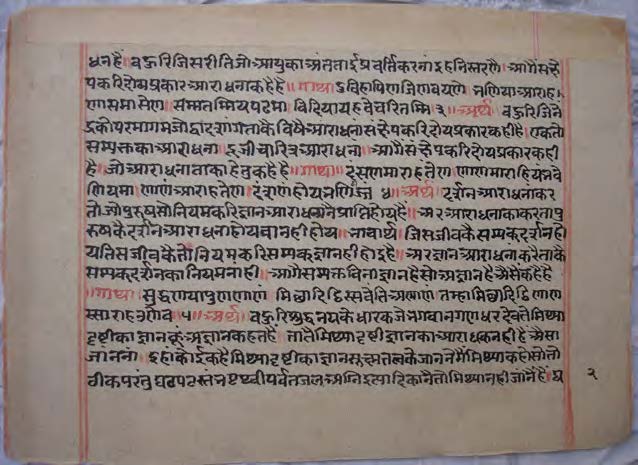 धन है। बहुरि जिस रीति जो आयु का अंतताई प्रवर्त्ति करना इह निस्तरण है। आगैं संक्षे
प करि दोय प्रकार आराधना कहै है॥ गाथा॥ दुविहा पुण जिणवयणे भणिया आराह
णा समासेण। सम्मत्तम्मिय पढमा बिदिया य हवे चरित्तम्मि ३॥ अर्थ॥ बहुरि जिनें
द्र को परमागम जो द्वादशांग ताकै विषै आराधना संक्षेप करि दोय प्रकार कही है। एक तो
सम्यक्त का आराधना। दूजी चारित्र आराधना। आगैं संक्षेप करि दोय प्रकार कही
है। जो आराधना ताका हेतु कहै है॥ गाथा॥ दंसणमाराहंतेण णाणमाराहियं भवे
णियमा णाणं आराहंतेण दंसणं होय भणिज्जं ४॥ अर्थ॥ दर्शन आराधना कर
तो जो पुरुष सो नियम करि ज्ञान आराधनानै प्राप्ति होय है। अर ज्ञान आराधना का करता पु
रुष कै दर्शन आराधना होय वा नही होय। भावार्थ। जिस जीव कै सम्यक दर्शन हो
य तिस जीव कै तो नियम करि सम्यक ज्ञान ही होइ है। अर ज्ञान आराधना करै ताकै
सम्यक दर्शन का नियम नाही। आगैं सम्यक्त विना ज्ञान है सो अज्ञान है औसें कहै है
॥ गाथा॥ सुद्धणया पुण णाणं मिच्छादिट्ठिस्स वेंति अण्णाणं तम्हा मिच्छादिट्ठि णाण
स्साराहओ णेव ५॥ अर्थ॥ बहुरि शुद्ध नय के धारक जे भगवान गणधर देव ते मिथ्या
दृष्टी का ज्ञान कूं अज्ञान कहत है। तातै मिथ्या दृष्टी ज्ञान का आराधक नही है औसा
जानना। इहां कोई कहै मिथ्या दृष्टी का ज्ञान सूक्ष्म तत्व के जानने मैं मिथ्या कहो सो तो
ठीक परंतु घट पट स्तंभ पृथ्वी पर्वत जल अग्नि इत्यादिकानै तो मिथ्या नही जांनै है। घ
२